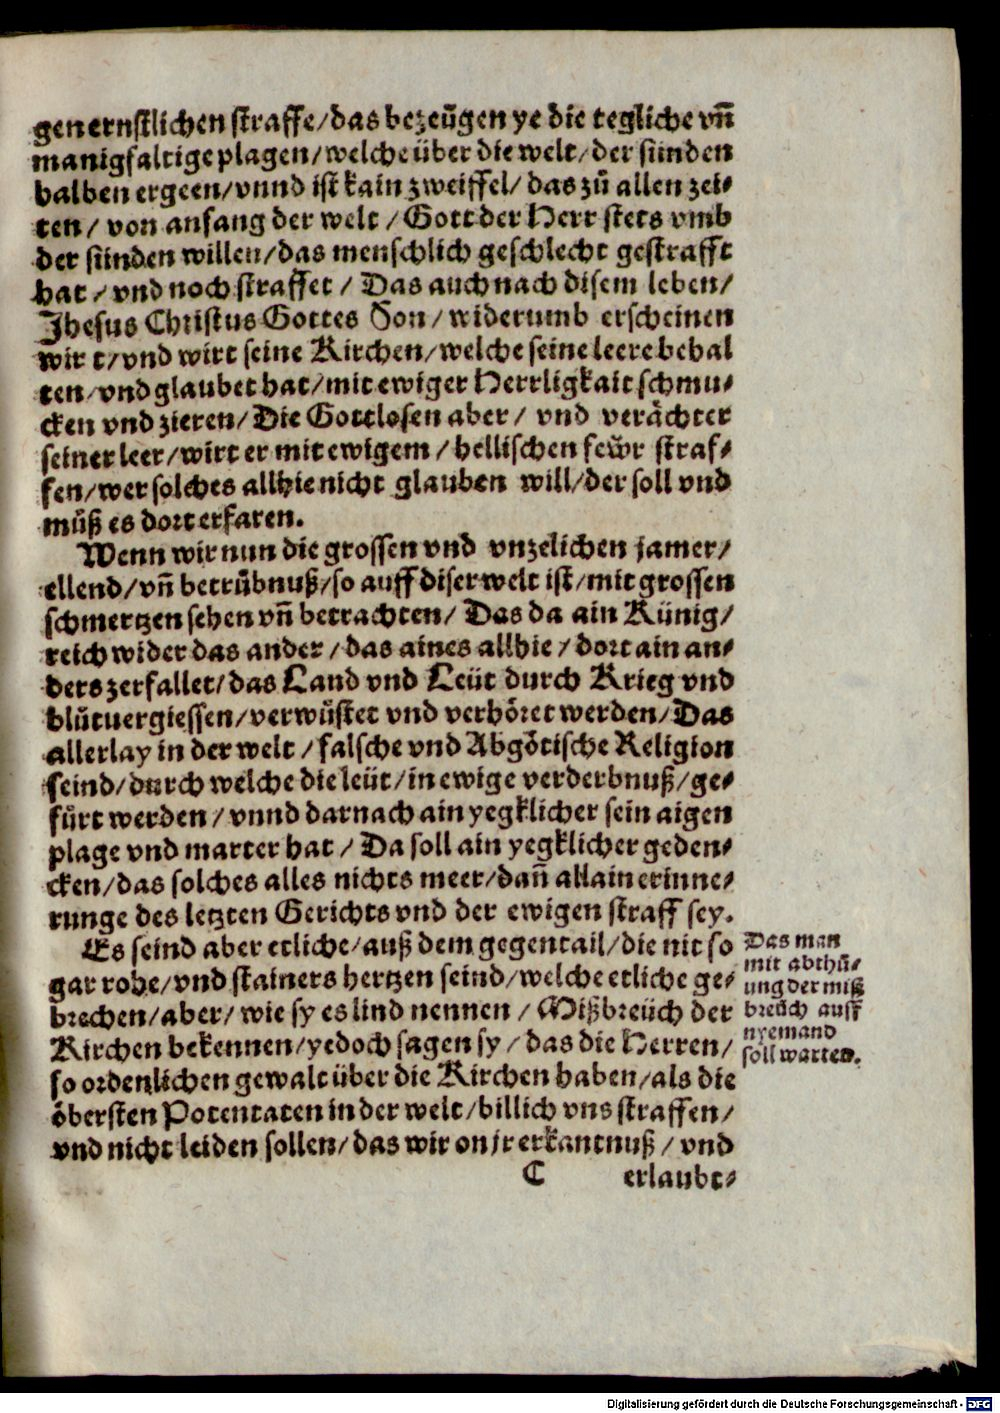 gen ernstlichen straffe/das bezeügen ye die tegliche vñ
manigfaltige plagen/welche über die welt/der sünden
halben ergeen/vnnd ist kain zweiffel/das zů allen zei⸗
ten/ von anfang der welt /Gott der Herr stets vmb
der sünden willen/das menschlich geschlecht gestrafft
hat /vnd noch straffet / Das auch nach disem leben/
Jhesus Christus Gottes Son/widerumb erscheinen
wir t/vnd wirt seine Kirchen/welche seine leere behal
ten/vnd glaubet hat/mit ewiger Herrligkait schmu⸗
cken vnd zieren/Die Gottlosen aber/ vnd verächter
seiner leer/wirt er mit ewigem /hellischen fewr straf⸗
fen/wer solches allhie nicht glauben will/der soll vnd
můß es dort erfaren.
Wenn wir nun die grossen vnd vnzelichen jamer/
ellend/vñ betrübnuß/so auff diser welt ist/mit grossen
schmertzen sehen vñ betrachten/ Das da ain Künig/
reich wider das ander /das aines allhie /dort ain an⸗
ders zerfallet/das Land vnd Leüt durch Krieg vnd
blůtuergiessen/verwüstet vnd verhöret werden/Das
allerlay in der welt /falsche vnd Abgötische Religion
seind/durch welche die leüt/in ewige verderbnuß/ge⸗
fürt werden /vnnd darnach ain yegklicher sein aigen
plage vnd marter hat / Da soll ain yegklicher geden⸗
cken/das solches alles nichts meer/dañ allain erinne⸗
runge des letzten Gerichts vnd der ewigen straff sey.
Es seind aber etliche/auß dem gegentail/die nit so
gar rohe/vnd stainers hertzen seind/welche etliche ge⸗
brechen/aber/ wie sy es lind nennen / Mißbreüch der
Kirchen bekennen/yedoch sagen sy /das die Herren/
so ordenlichen gewalt über die Kirchen haben/als die
öbersten Potentaten in der welt/billich vns straffen/
vnd nicht leiden sollen/das wir on jr erkantnuß /vnd
C erlaubt⸗
Das man
mit abthů⸗
ung der miß
breüch auff
nyemand
soll warten.
Digitalisierung gefördert durch die Deutsche Forschungsgemeinschaft - DFG